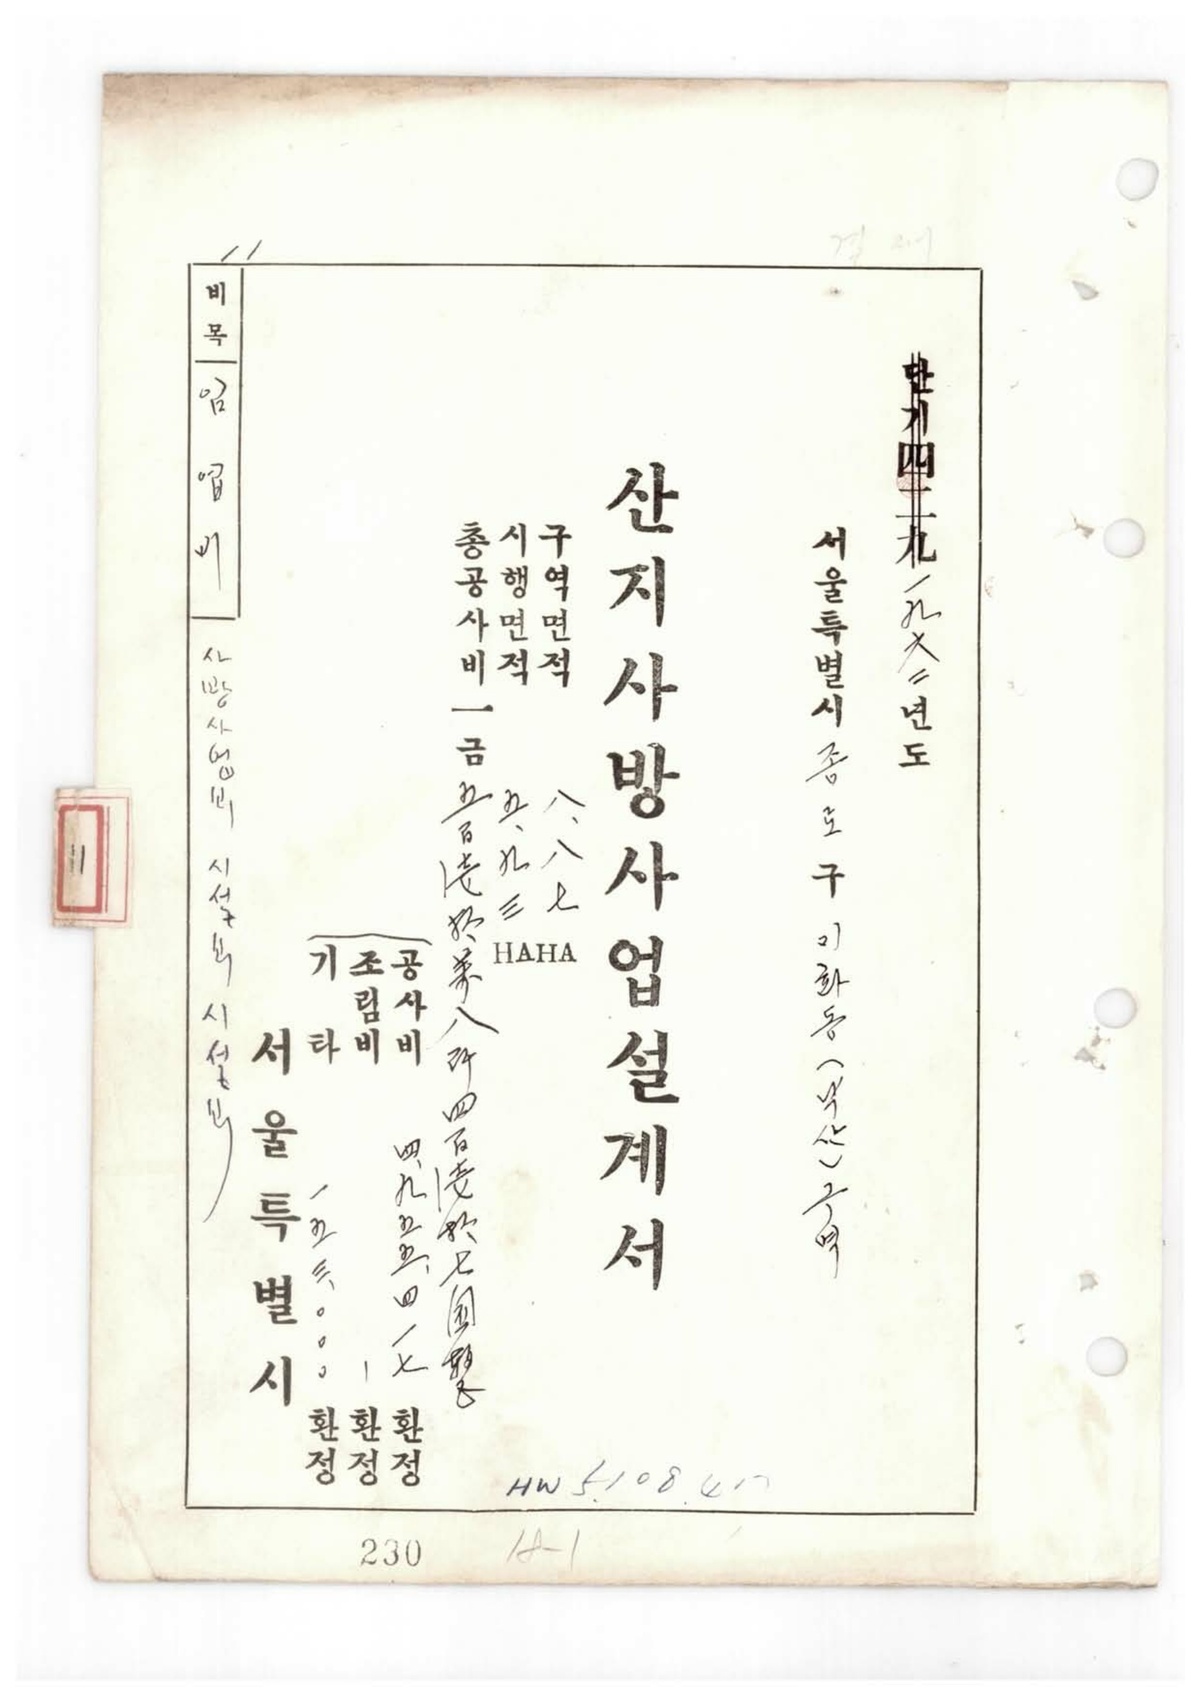 결재
단기四二九 一九六二년도
서울특별시 종로구 이화동(낙산)구역
산지사방사업설계서
구역면적 八.八七 HA
시행면적 五.九三 HA
총공사비 一금 五百壹拾萬八阡四百壹拾七圜整
공사비 四,九五五,四一七 환정
조림비 - 환정
기타 一五三,000 환정
서울특별시
비목 임업비
사방사업비 시설비 시설비
11
1
HW 5,108,417
230
A-1